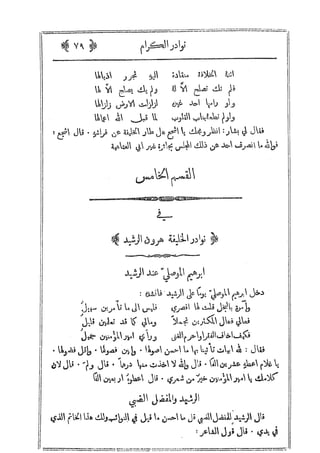 ﴿ ٧٩ ﴾ نوادر الكرام
اتته الخلافة منقادة اليه تجرر اذيالها
فلم تك تصلح الا له ولم يك يصلح الا لها
ولو رامها احد غيره لزلزلت الارض زلزالها
ولو لم تطعه بنات القلوب لما قبل الله اعمالها
فقال لي بشار: انظر ويحك يا اشجع هل طار الخليفة عن فراشه ٠ قال اشجع:
فوالله ما انصرف احد عن ذلك المجلس بجائزة غير ابي العتاهية
القسم الخامس
في
﴿ نوادر الخليفة هرون الرشيد ﴾
ابرهيم الموصلي عند الرشيد
دخل ابرهيم الموصلي يوما على الرشيد فانشده:
وآمرة بالبخل قلت لها اقصري فليس الى ما تأمرين سبيل
فعالي فعال المكثرين تجملا ومالي كما قد تعلمين قليل
فكيف اخاف الفقر او احرم الغنى ورأي امير المؤمنين جميل
فقال: لله ابيات تأتينا بها ما احسن اصولها ٠ وابين فصولها ٠ واقل فضولها ٠
يا غلام اعطه عشرين الفا ٠ قال والله لا اخذت منها درهما ٠ قال ولم ٠ قال لان
كلامك يا امير المؤمنين خير من شعري ٠ قال اعطوه اربعين الفا
الرشيد والمفضل الضبي
قال الرشيد للمفضل الضبي قل ما احسن ما قيل في الذئب ولك هذا الخاتم الذي
في يدي ٠ قال قول الشاعر: